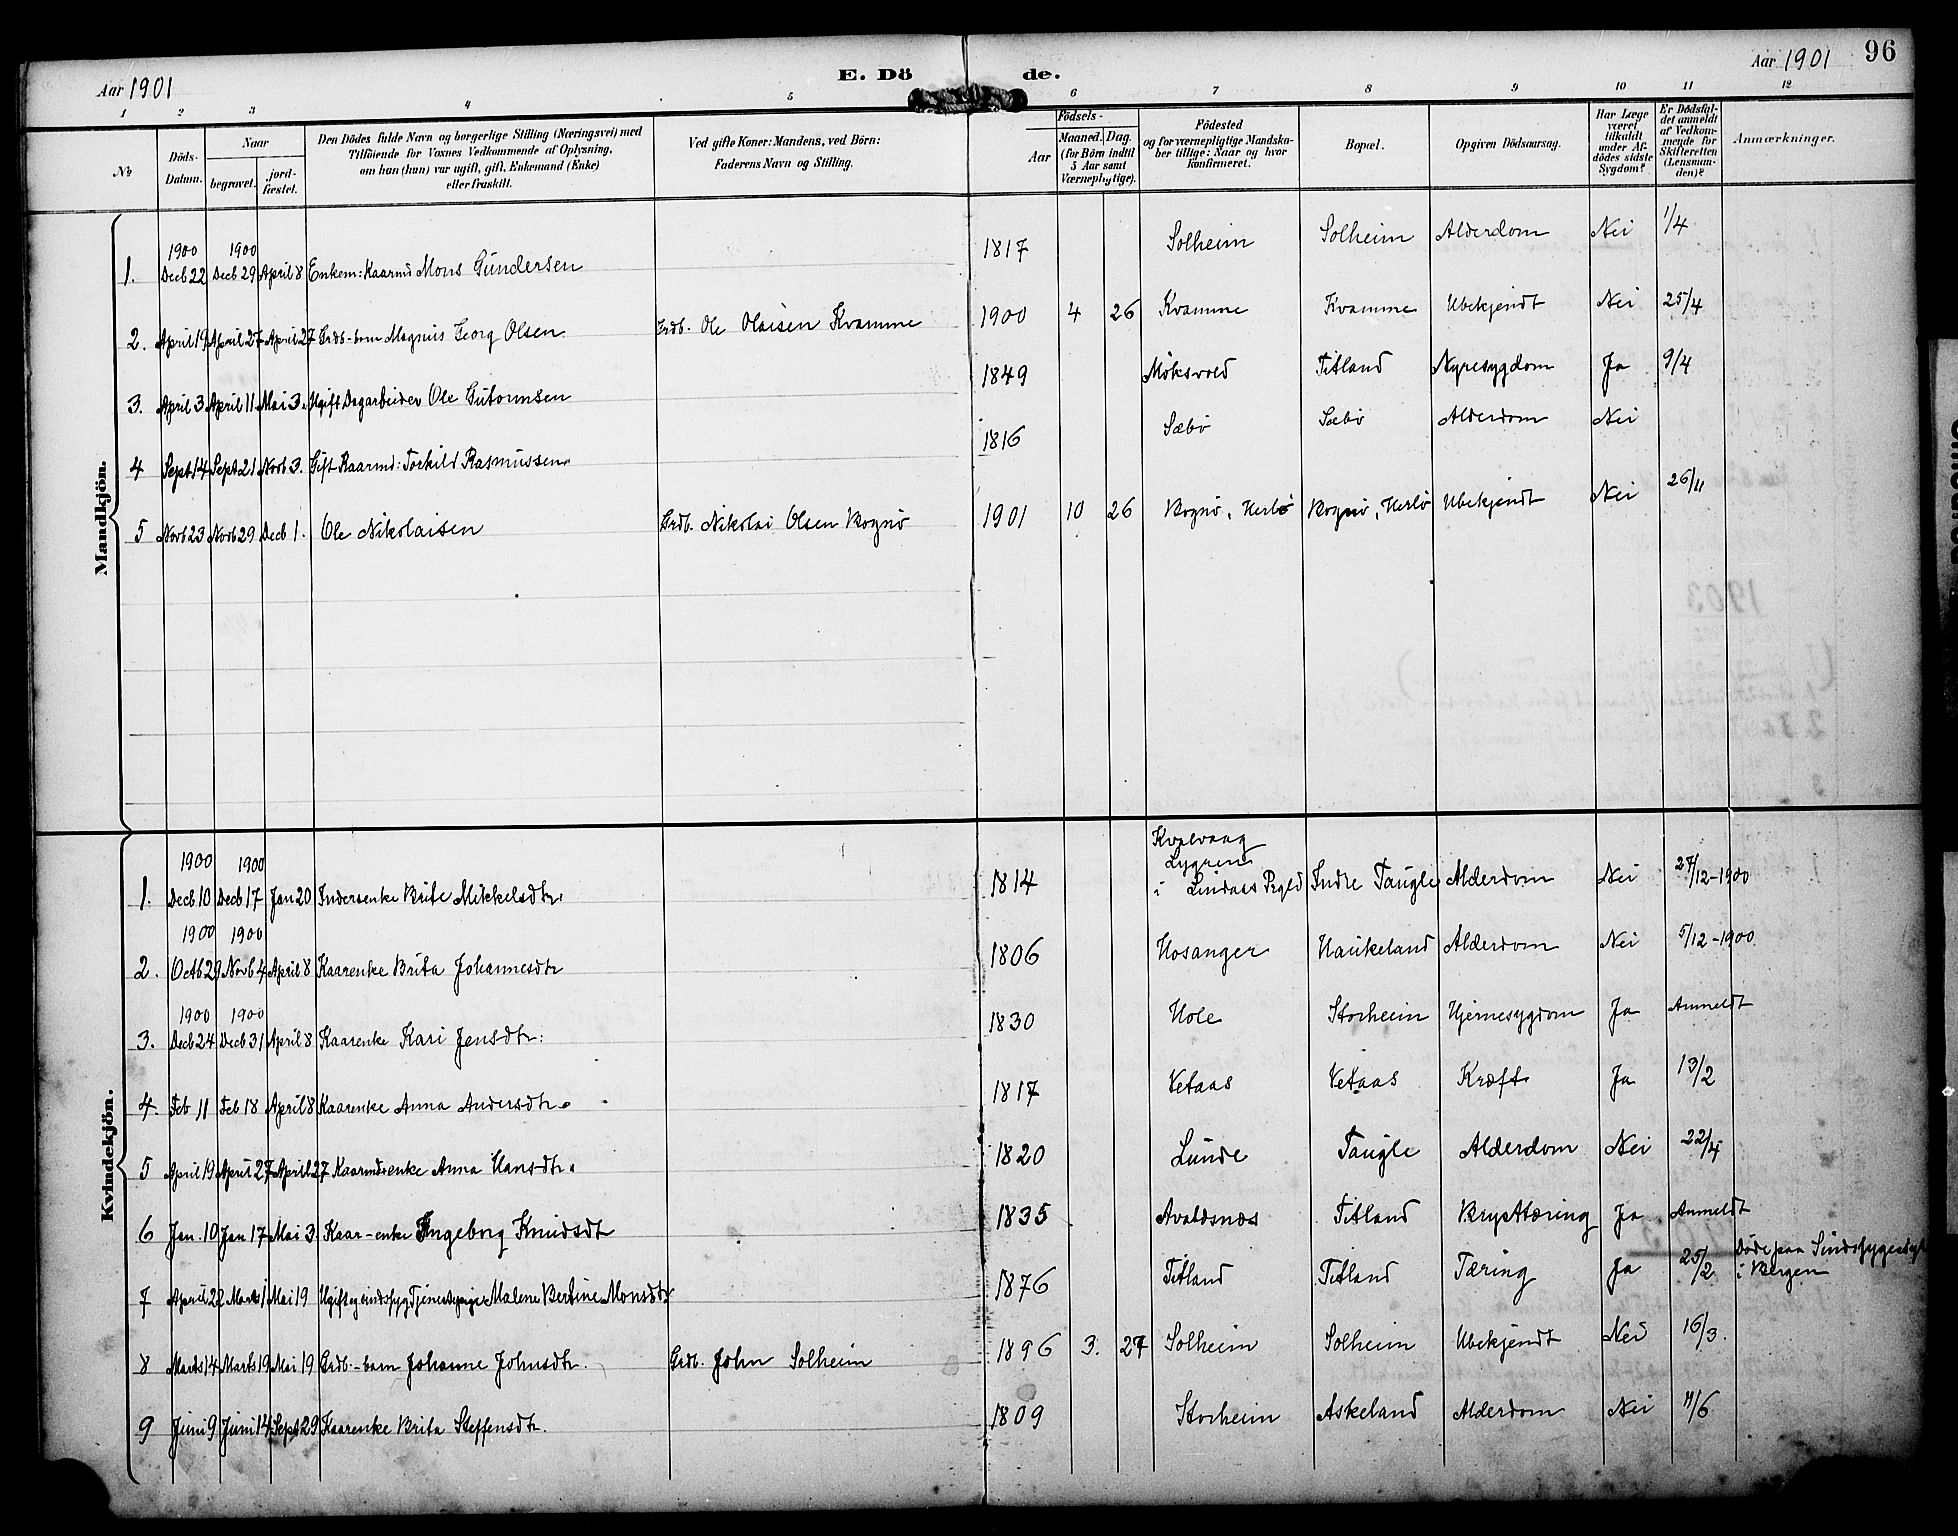 Aar 1901 E. Döde. Aar 1901 96
1 2 3 4 5 6 7 8 9 10 11 12
No
Döds-Datum.
Naar
begravet. jord-fæstet.
Den Dödes fulde Navn og borgerlige Stilling (Næringsvei) med
Tilföiende for Voxnes Vedkommende af Oplysning,
om han (hun) var ugift, gift, Enkemand (Enke)
eller fraskilt.
Ved gifte Koner: Mandens, ved Börn:
Faderens Navn og Stilling.
Födsels-
Aar Maaned. Dag.
(for Børn indtil
5 Aar samt
Værnepligtige).
Födested
og for værnepligtige Mandska-
ber tillige: Naar og hvor
konfirmeret.
Bopæl.
Opgiven Dödsaarsag.
Har Læge
været
tilkaldt
under Af-
dödes sidste
Sygdom?
Er Dödsfal-
det anmeldt
af Vedkom-
mende for
Skifteretten
(Lensman-
den)?
Anmærkninger.
Mandkjön.
1900 1900
1. Decb 22 Decb 29 April 8 Enkem: Kaarmd Mons Gundersen 1817 Solheim Solheim Alderdom Nei 1/4
2. April 19 April 27 April 27 Grdb-barn Magnus Georg Olsen Grdb. Ole Olaisen Kvamme 1900 4 26 Kvamme Kvamme Ubekjendt Nei 25/4
3. April 3 April 11 Mai 3. Ugift Dagarbeider Ole Gutormsen 1849 Möksvold Titland Nyresygdom Ja 9/4
4 Sept 14 Sept 21 Novb 3. Gift Kaarmd: Torkild Rasmussen. 1816 Sæbö Sæbö Alderdom Nei
5 Novb 23 Novb 29 Decb 1. Ole Nikolaisen Grdb. Nikolai Olsen Bognö 1901 10 26 Bognö, Herlö Bognö, Herlö Ubekjendt Nei 26/11
Kvindekjön.
1900 1900 Kvalvaag
Lygren
1. Decb 10 Decb 17 Jan 20 Inderenke Brite Mikkelsdtr. 1814 i Lindaas Prgld Indre Taugle Alderdom Nei 27/12-1900
1900 1900
2. Octb 29 Novb 4 April 8 Kaarenke Brita Johannesdtr 1806 Hosanger Haukeland Alderdom Nei 5/12-1900.
1900 1900
3. Decb 24 Decb 31 April 8 Kaarenke Kari Jensdtr: 1830 Hole Storheim Hjernesygdom Ja Anmeldt
4. Feb 11 Feb 18 April 8 Kaarenke Anna Andersdtr. 1817 Vetaas Vetaas Kræft Ja 13/2
5 April 19 April 27 April 27 Kaarmdsenke Anna Hansdtr. 1820 Lunde Taugle Alderdom Nei 22/4
6 Jan. 10 Jan 17 Mai 3. Kaar-enke Ingeborg Knudsdt 1835 Avaldsnæs Titland Brysttæring Ja Anmeldt
7 April 22 Marts 1 Mai 19 Ugift og sindssyg Tjenestepige Malene Bertine Monsdtr 1876 Titland Titland Tæring Ja 25/2 Döde paa Sindssygeasyl
i Bergen
8 Marts 14 Marts 19 Mai 19 Grdb.-barn Johanne Johnsdtr. Grdb. John Solheim 1896 3. 27 Solheim Solheim Ubekjendt Nei 16/3.
9 Juni 9 Juni 14 Sept 29 Kaarenke Brita Steffensdtr. 1809 Storheim Askeland Alderdom Nei 11/6